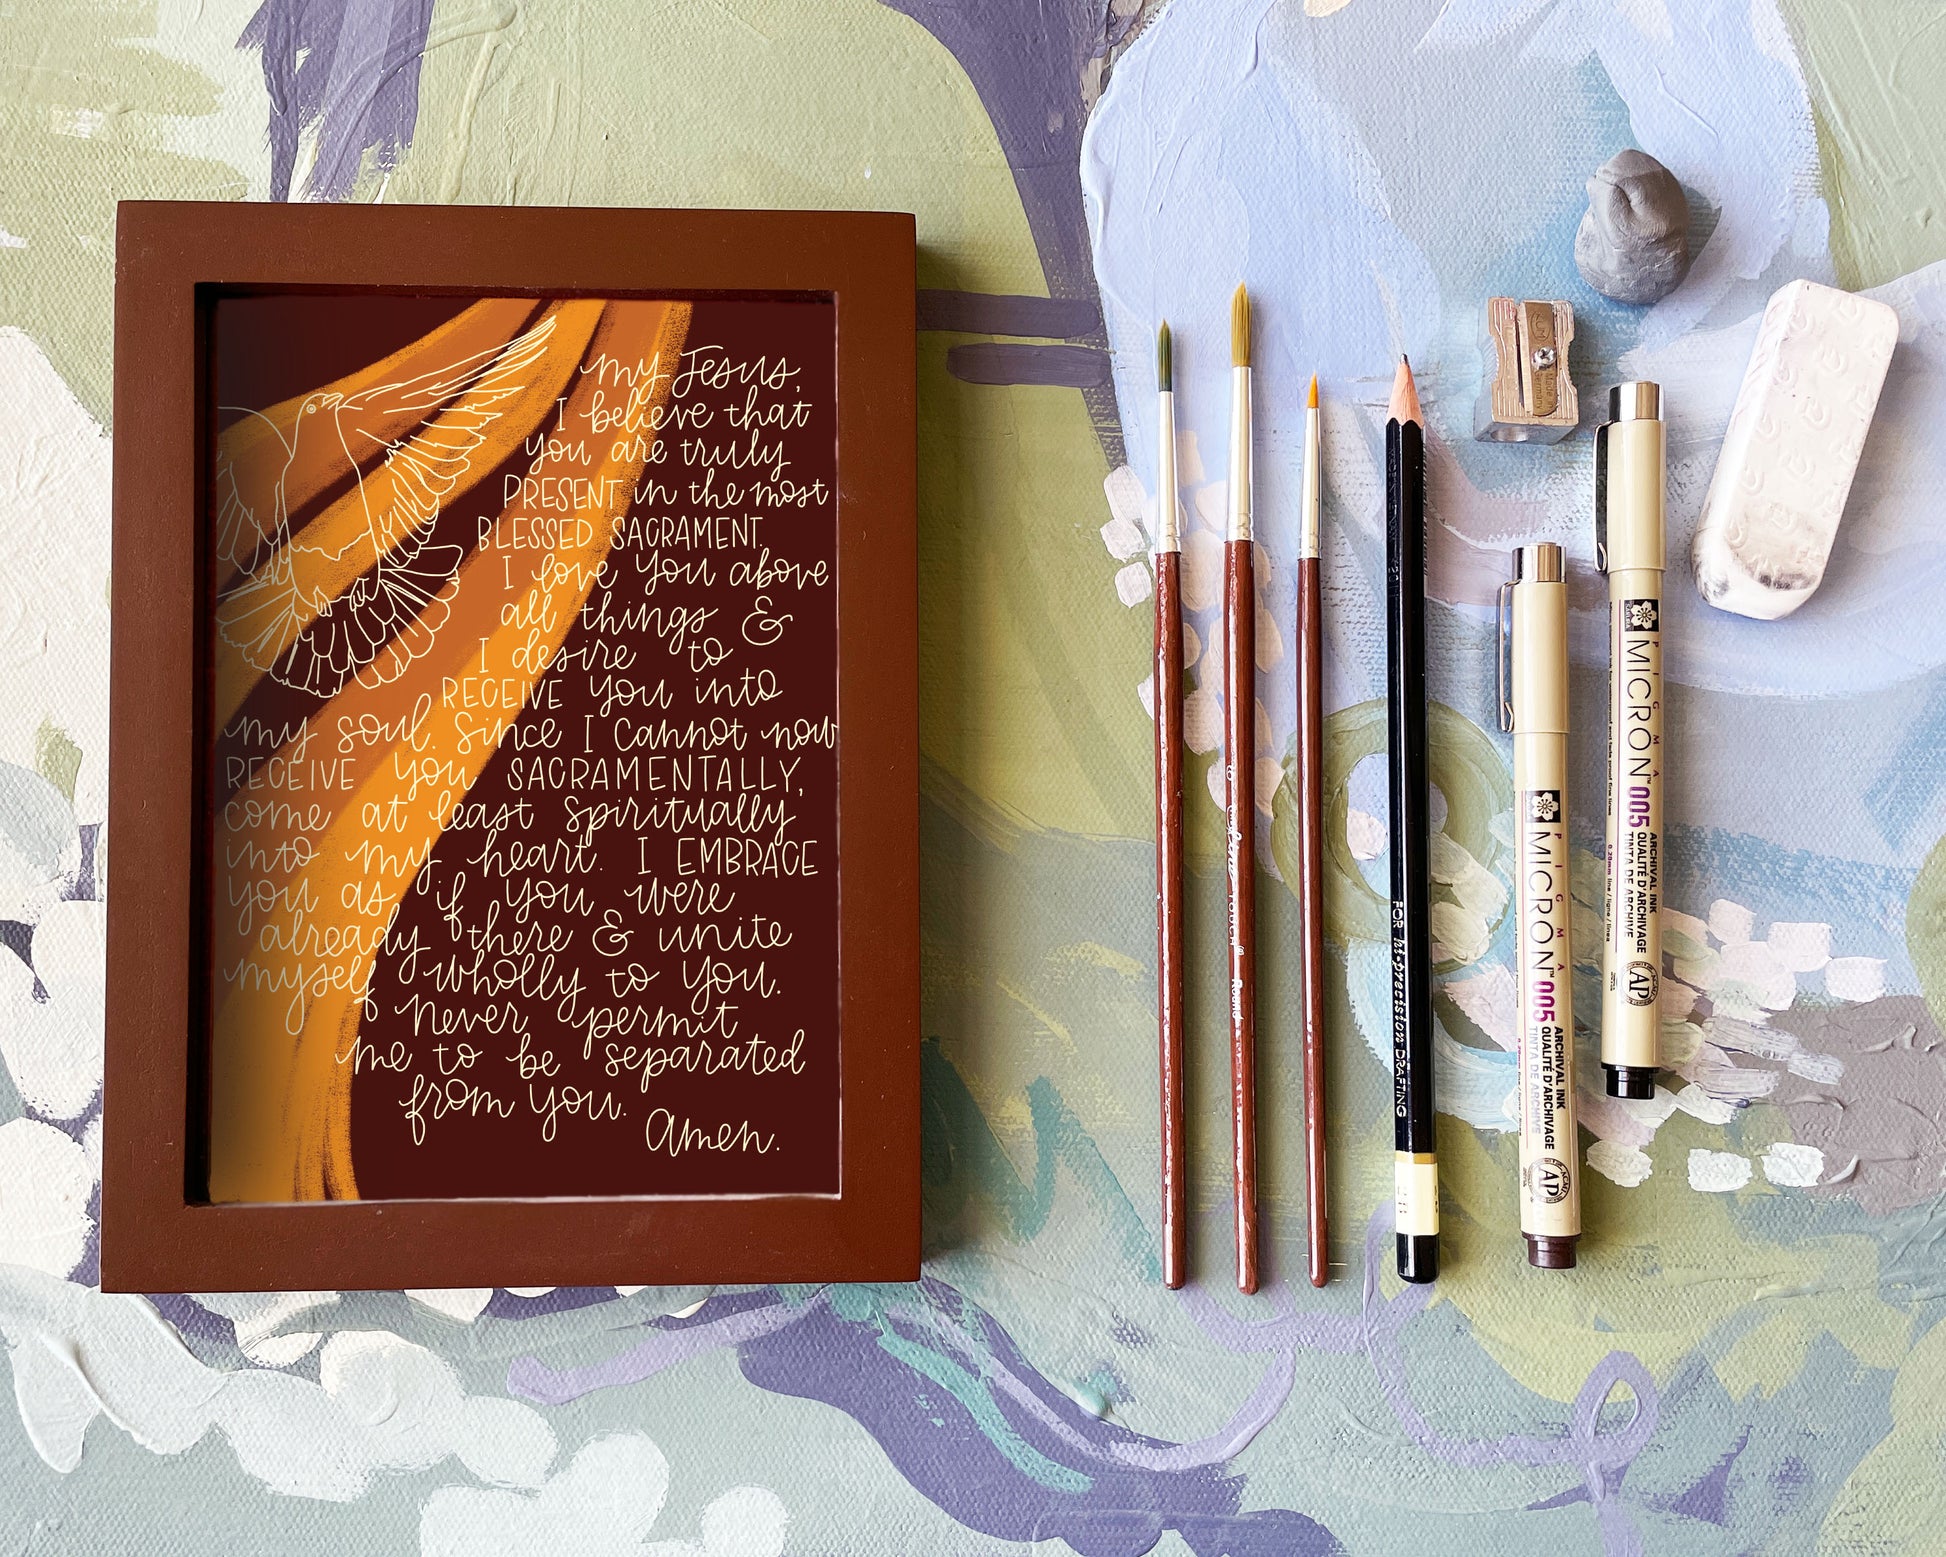 my Jesus,
I believe that
you are truly
PRESENT in the most
BLESSED SACRAMENT.
I love you above
all things &
I desire to
RECEIVE you into
my soul. Since I cannot now
RECEIVE you SACRAMENTALLY,
come at least spiritually
into my heart. I EMBRACE
you as if you were
already there & unite
myself wholly to you.
Never permit
me to be separated
from you.
Amen.
TOUCH
Round
FOR hi-precision DRAFTING
PIGMA
MICRON™ 005
ARCHIVAL INK
QUALITÉ D'ARCHIVAGE
TINTA DE ARCHIVE
AP
PIGMA
MICRON™ 005
ARCHIVAL INK
QUALITÉ D'ARCHIVAGE
TINTA DE ARCHIVE
AP